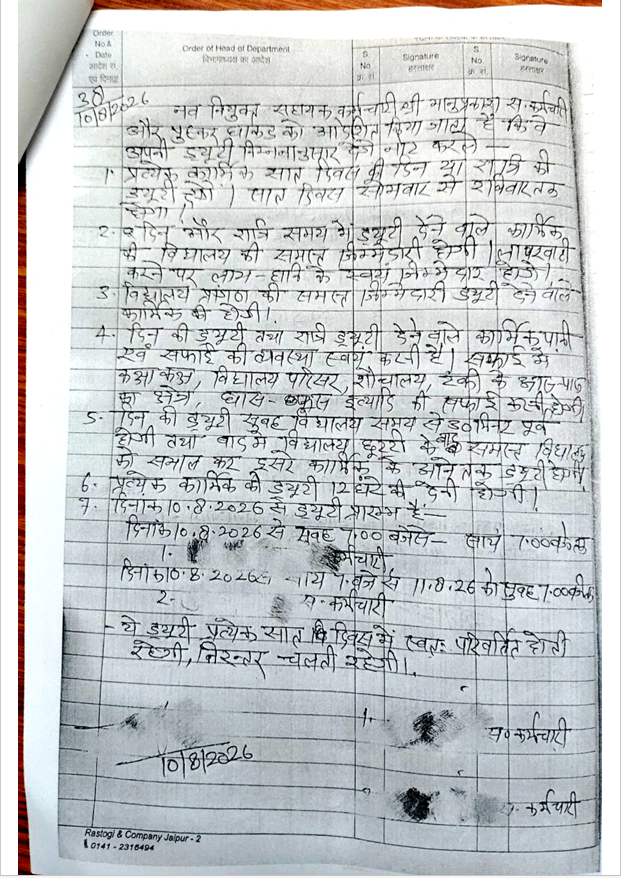 Order No.& Date
आदेश सं. एवं दिनांक
Order of Head of Department
विभागाध्यक्ष का आदेश
S. No.
क्र.सं.
Signature
हस्ताक्षर
S. No.
क्र.सं.
Signature
हस्ताक्षर
38
10/8/2026
नव नियुक्त सहायक कर्मचारी श्री भानुप्रकाश स. कर्मचारी
और पुष्कर धाकड को आदेशित किया जाता है कि वे
अपनी ड्यूटी निम्नानुसार देंगे नोट करले -
1. प्रत्येक कार्मिक सात दिवस की दिन या रात्रि की
ड्यूटी होगी। सात दिवस सोमवार से रविवार तक
होगा।
2. दिन और रात्रि समय में ड्यूटी देने वाले कार्मिक
की विद्यालय की समस्त जिम्मेदारी होगी। लापरवाही
करने पर लाभ-हानि के स्वयं जिम्मेदार होंगे।
3. विद्यालय की समस्त जिम्मेदारी ड्यूटी देने वाले
कार्मिक की होगी।
4. दिन की ड्यूटी तथा रात्रि ड्यूटी देने वाले कार्मिक पानी
एवं सफाई की व्यवस्था स्वयं करनी है। सफाई में
कक्षा कक्ष, विद्यालय परिसर, शौचालय, टंकी के आस-पास
का क्षेत्र, घास-फूस इत्यादि की सफाई करनी होगी
5. दिन की ड्यूटी सुबह विद्यालय समय से 30 मिनट पूर्व
होगी तथा बाद में विद्यालय छुट्टी के बाद समस्त विद्यालय
को संभाल कर दूसरे कार्मिक के आने तक ड्यूटी होगी
6. प्रत्येक कार्मिक को ड्यूटी 12 घंटे की देनी होगी।
7. दिनांक 10.8.2026 से ड्यूटी प्रारम्भ है:-
दिनांक 10.8.2026 से सुबह 7.00 बजे से - सायं 7.00 बजे तक
1. कर्मचारी
दिनांक 10.8.2026 सायं 7 बजे से 11.8.26 को सुबह 7.00 बजे तक
2- स. कर्मचारी
- ये ड्यूटी प्रत्येक सात दिवस में स्वतः परिवर्तित होती
रहेगी, निरन्तर चलती रहेगी।
1. स० कर्मचारी
10/8/2026
स. कर्मचारी
Rastogi & Company Jaipur - 2
0141 - 2316494